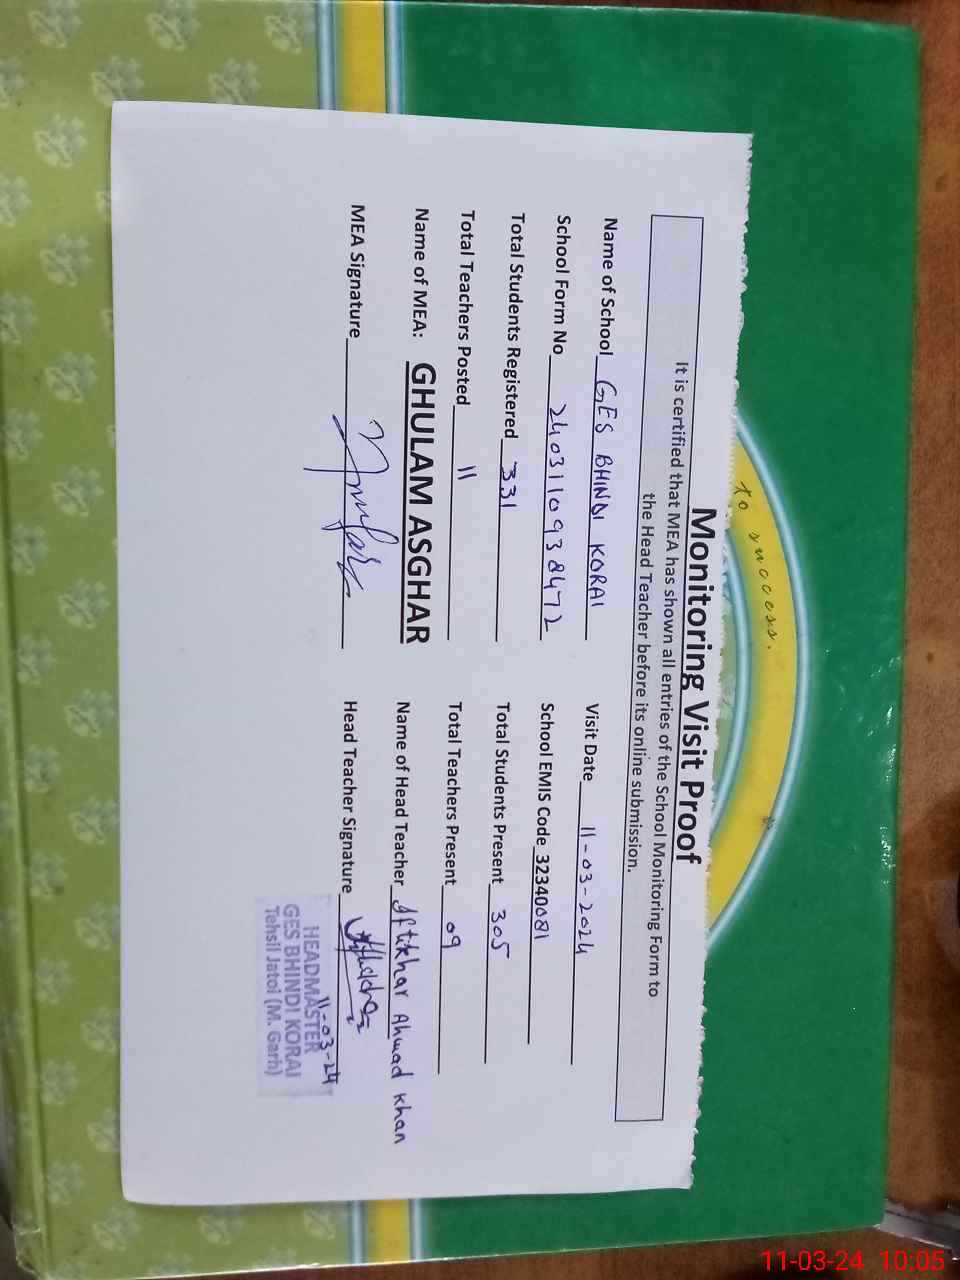 to success.
Monitoring Visit Proof
It is certified that MEA has shown all entries of the School Monitoring Form to
the Head Teacher before its online submission.
Name of School GES BHINDI KORAI Visit Date 11-03-2024
School Form No 2403110938472 School EMIS Code 32340081
Total Students Registered 331 Total Students Present 305
Total Teachers Posted 11 Total Teachers Present 09
Name of MEA: GHULAM ASGHAR Name of Head Teacher Iftikhar Ahmad Khan
MEA Signature Head Teacher Signature
11-03-24
HEADMASTER
GES BHINDI KORAI
Tehsil Jatoi (M. Garh)
11-03-24 10:05